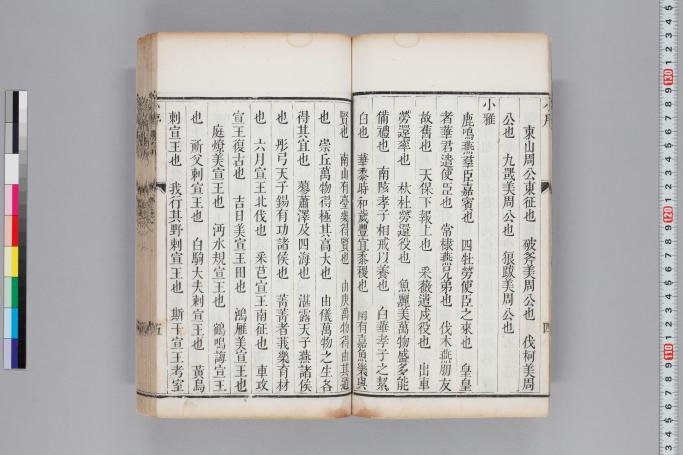 東山周公東征也　破斧美周公也　伐柯美周
公也　九罭美周公也　狼跋美周公也
小雅
鹿鳴燕羣臣嘉賓也　四牡勞使臣之來也　皇皇
者華君遣使臣也　常棣燕兄弟也　伐木燕朋友
故舊也　天保下報上也　采薇遣戍役也　出車
勞還率也　杕杜勞還役也　魚麗美萬物盛多能
備禮也　南陔孝子相戒以養也　白華孝子之絜
白也　華黍時和歲豐宜黍稷也　南有嘉魚樂與
賢也　南山有臺樂得賢也　由庚萬物得由其道
也　崇丘萬物得極其高大也　由儀萬物之生各
得其宜也　蓼蕭澤及四海也　湛露天子燕諸侯
也　彤弓天子錫有功諸侯也　菁菁者莪樂育材
也　六月宣王北伐也　采芑宣王南征也　車攻
宣王復古也　吉日美宣王田也　鴻雁美宣王也
庭燎美宣王也　沔水規宣王也　鶴鳴誨宣王
也　祈父刺宣王也　白駒大夫刺宣王也　黃鳥
刺宣王也　我行其野刺宣王也　斯干宣王考室